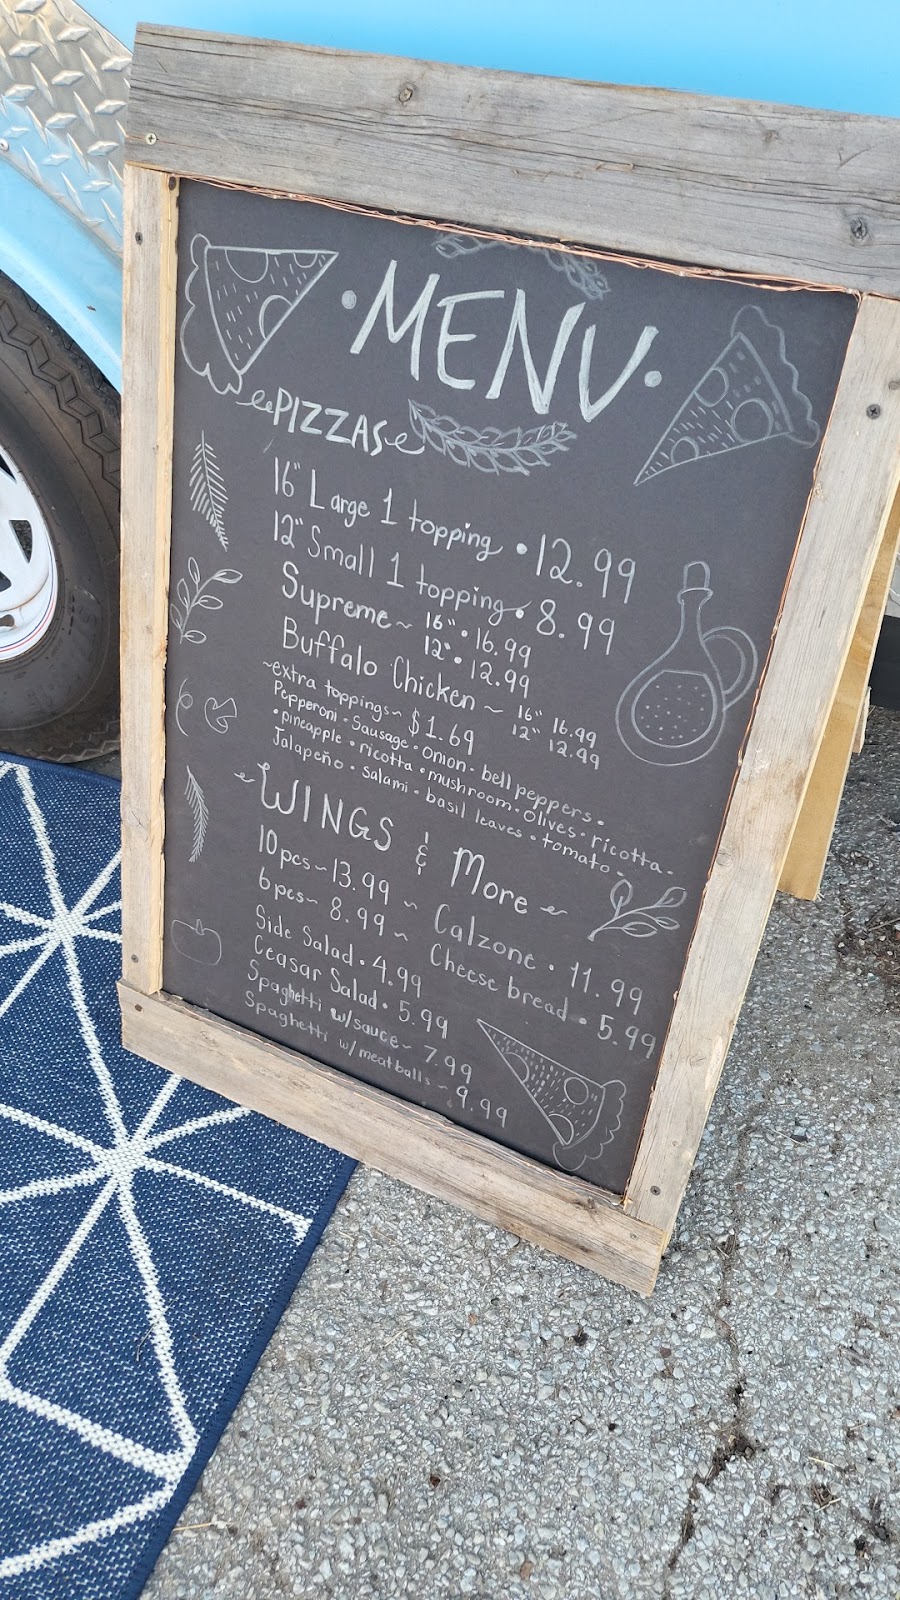 •MENU•
PIZZAS
16" Large 1 topping • 12.99
12" Small 1 topping • 8.99
Supreme ~ 16" • 16.99
12" • 12.99
Buffalo Chicken ~ 16" 16.99
12" 12.99
~extra toppings~ $1.69
Pepperoni • Sausage • onion • bell peppers •
• pineapple • ricotta • mushroom • olives • ricotta •
Jalapeño • salami • basil leaves • tomato •
WINGS & More
10 pcs ~ 13.99 ~ Calzone • 11.99
6 pcs ~ 8.99 ~ Cheese bread • 5.99
Side Salad • 4.99
Ceasar Salad • 5.99
Spaghetti w/sauce ~ 7.99
Spaghetti w/meatballs ~ 9.99